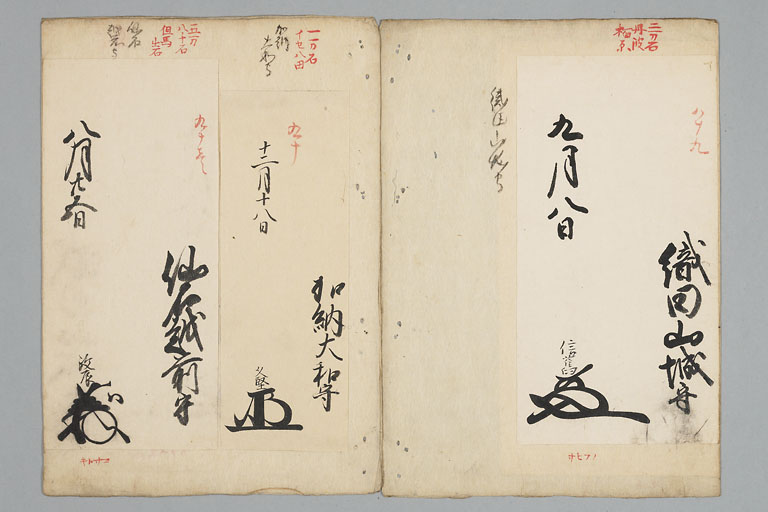 二万石
丹波
柏原
八十九
織田山城守
九月八日
信舊
織田山城守
一万石
加納
大和守
九十
加納大和守
十二月十八日
久堅
五万
八十石
但馬
出石
仙石
越前守
九十壱
仙石越前守
八月十五日
政辰